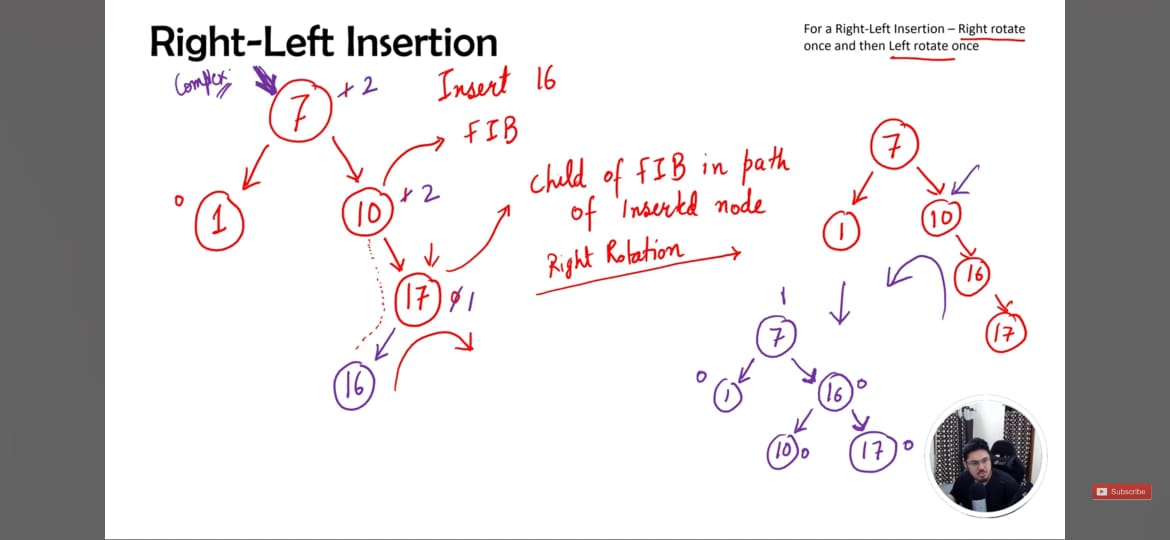 Right-Left Insertion
For a Right-Left Insertion – Right rotate
once and then Left rotate once
Complex:
7 +2
Insert 16
FIB
0 1
10 +2
Child of FIB in path
of Insertd node
Right Rotation
17 0 1
16
7
1
10
16
17
1
7
0 1
16 0
10 0
17 0
Subscribe